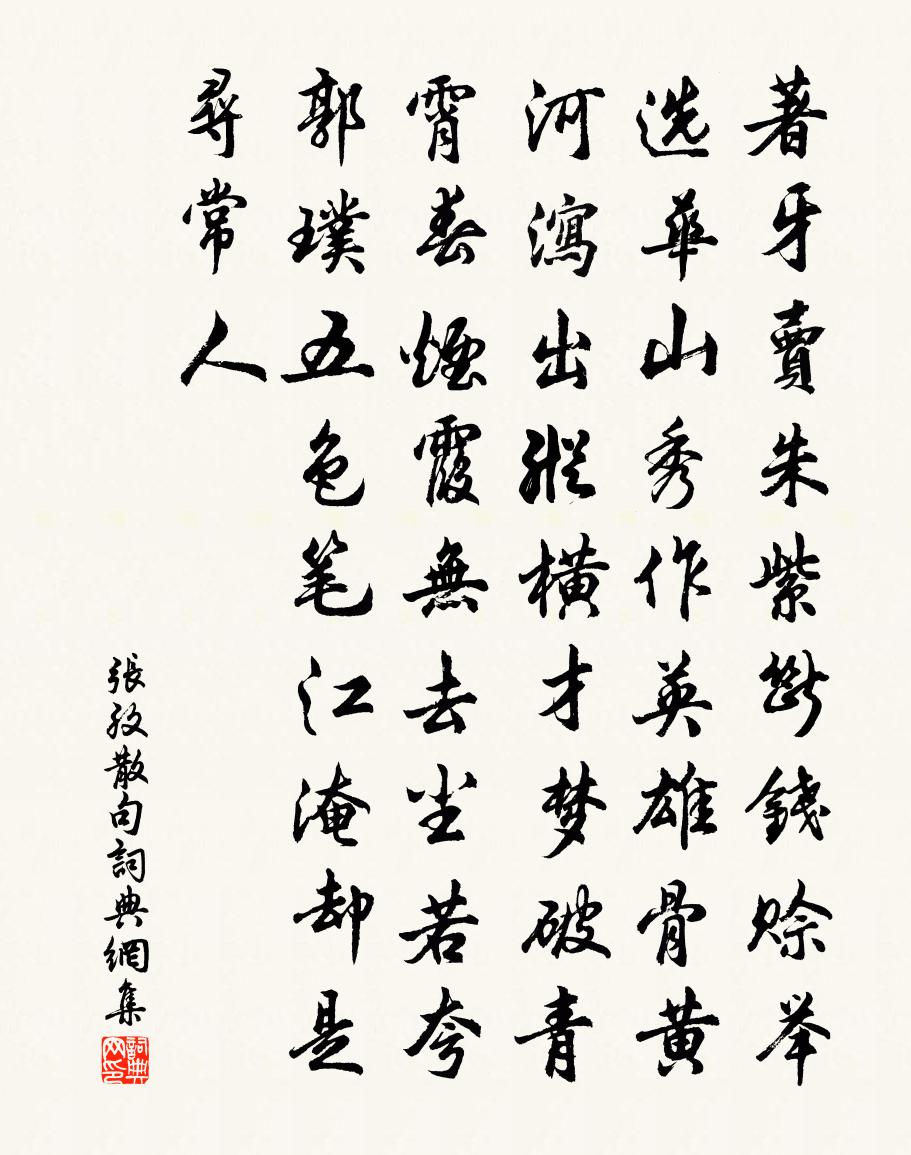 著牙賣朱紫斷錢赊举
选華山秀作英雄骨黃
河瀉出縱橫才梦破青
霄春煙霞無去尘若夸
郭璞五色笔江淹却是
尋常人
張孜散句詞典網集
詞典网印